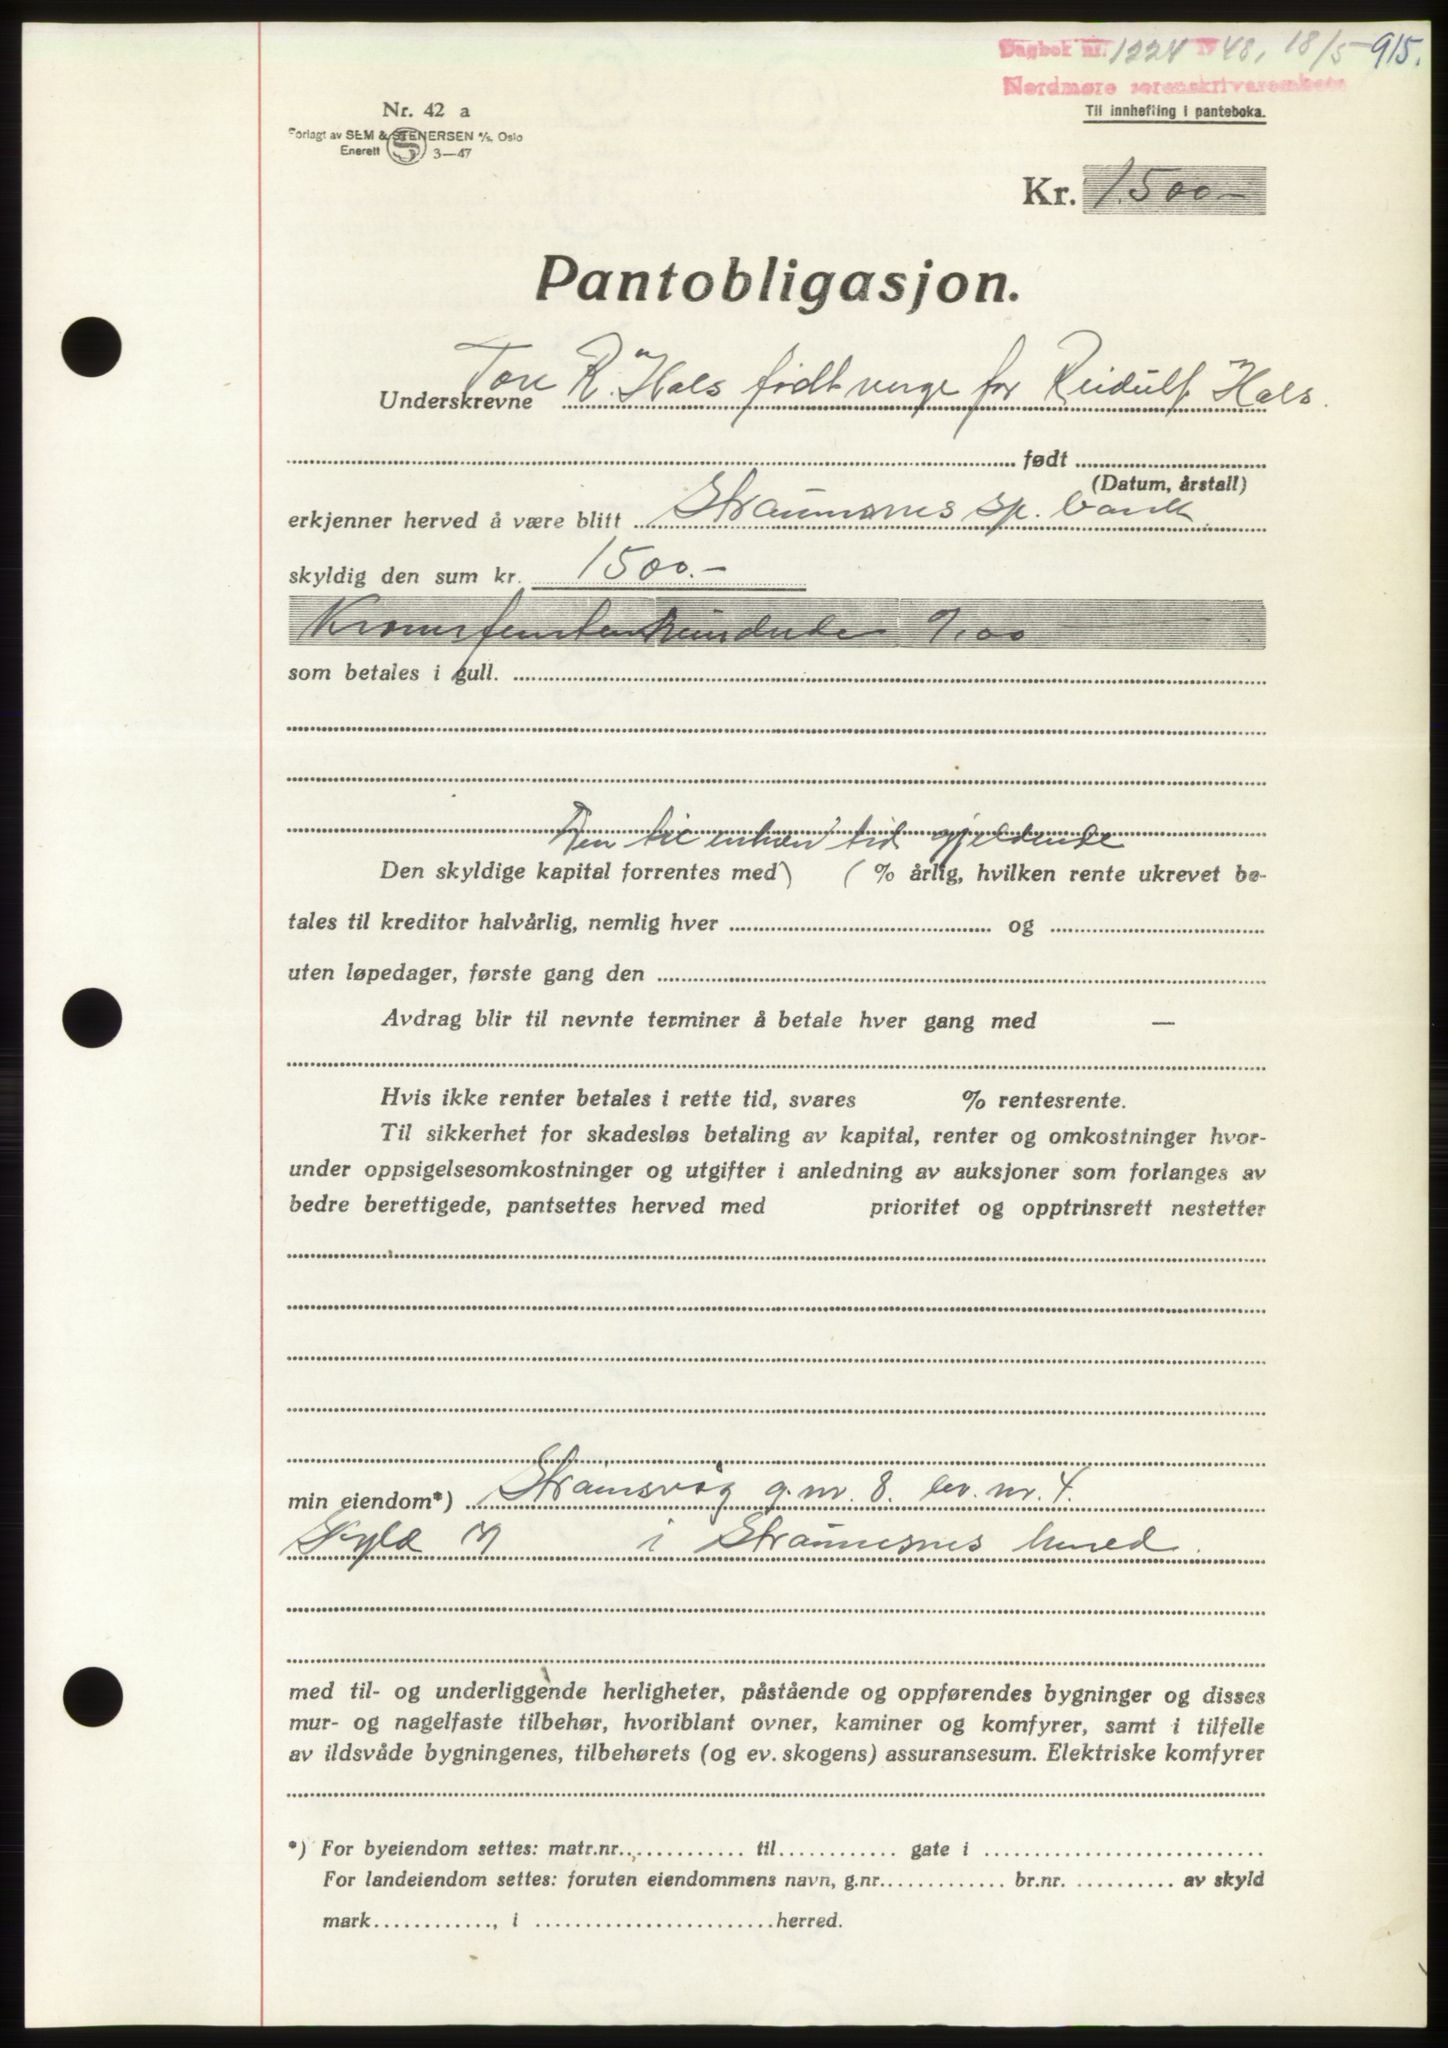 Dagbok nr. 1224 1948, 18/5 915.
Nordmøre sorenskriverembete
Til innhefting i panteboka.
Nr. 42 a
Forlagt av SEM & STENERSEN A/S, Oslo
Enerett S 3—47
Kr. 1.500-
Pantobligasjon.
Underskrevne Tore R. Hals født verge for Reidulf Hals.
født
(Datum, årstall)
erkjenner herved å være blitt Straumsnes sp. bank
skyldig den sum kr. 1500.-
Kroner femtenhundrede 0/00
som betales i gull.
Den til enhver tid gjeldende
Den skyldige kapital forrentes med) (% årlig, hvilken rente ukrevet be-
tales til kreditor halvårlig, nemlig hver og
uten løpedager, første gang den
Avdrag blir til nevnte terminer å betale hver gang med —
Hvis ikke renter betales i rette tid, svares % rentesrente.
Til sikkerhet for skadesløs betaling av kapital, renter og omkostninger hvor-
under oppsigelsesomkostninger og utgifter i anledning av auksjoner som forlanges av
bedre berettigede, pantsettes herved med prioritet og opptrinsrett nestetter
min eiendom*) Straumsvåg g.nr. 8. br. nr. 4.
Skyld M i Straumsnes herred.
med til- og underliggende herligheter, påstående og oppførendes bygninger og disses
mur- og nagelfaste tilbehør, hvoriblant ovner, kaminer og komfyrer, samt i tilfelle
av ildsvåde bygningenes, tilbehørets (og ev. skogens) assuransesum. Elektriske komfyrer
*) For byeiendom settes: matr.nr. til gate i
For landeiendom settes: foruten eiendommens navn, g.nr. br.nr. av skyld
mark , i herred.